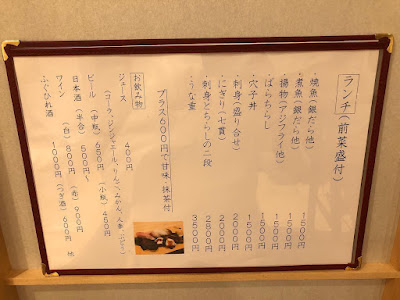 ランチ(前菜盛付)
・焼魚(銀だら他) 1500円
・煮魚(銀だら他) 1500円
・揚物(アジフライ他) 1500円
・ばらちらし 1500円
・穴子丼 1500円
・刺身(盛り合せ) 2000円
・にぎり(七貫) 2000円
・刺身とちらしの二段 2800円
・うな重 3500円
プラス600円で甘味、抹茶付
お飲み物
ジュース 400円
(コーラ、ジンジャエール、りんご、みかん、人参、ぶどう)
ビール (中瓶) 600円 (小瓶) 450円
日本酒(半合) 500円〜
ワイン (白) 800円 (赤) 900円
ふぐひれ酒 1000円 (つぎ酒) 600円 他